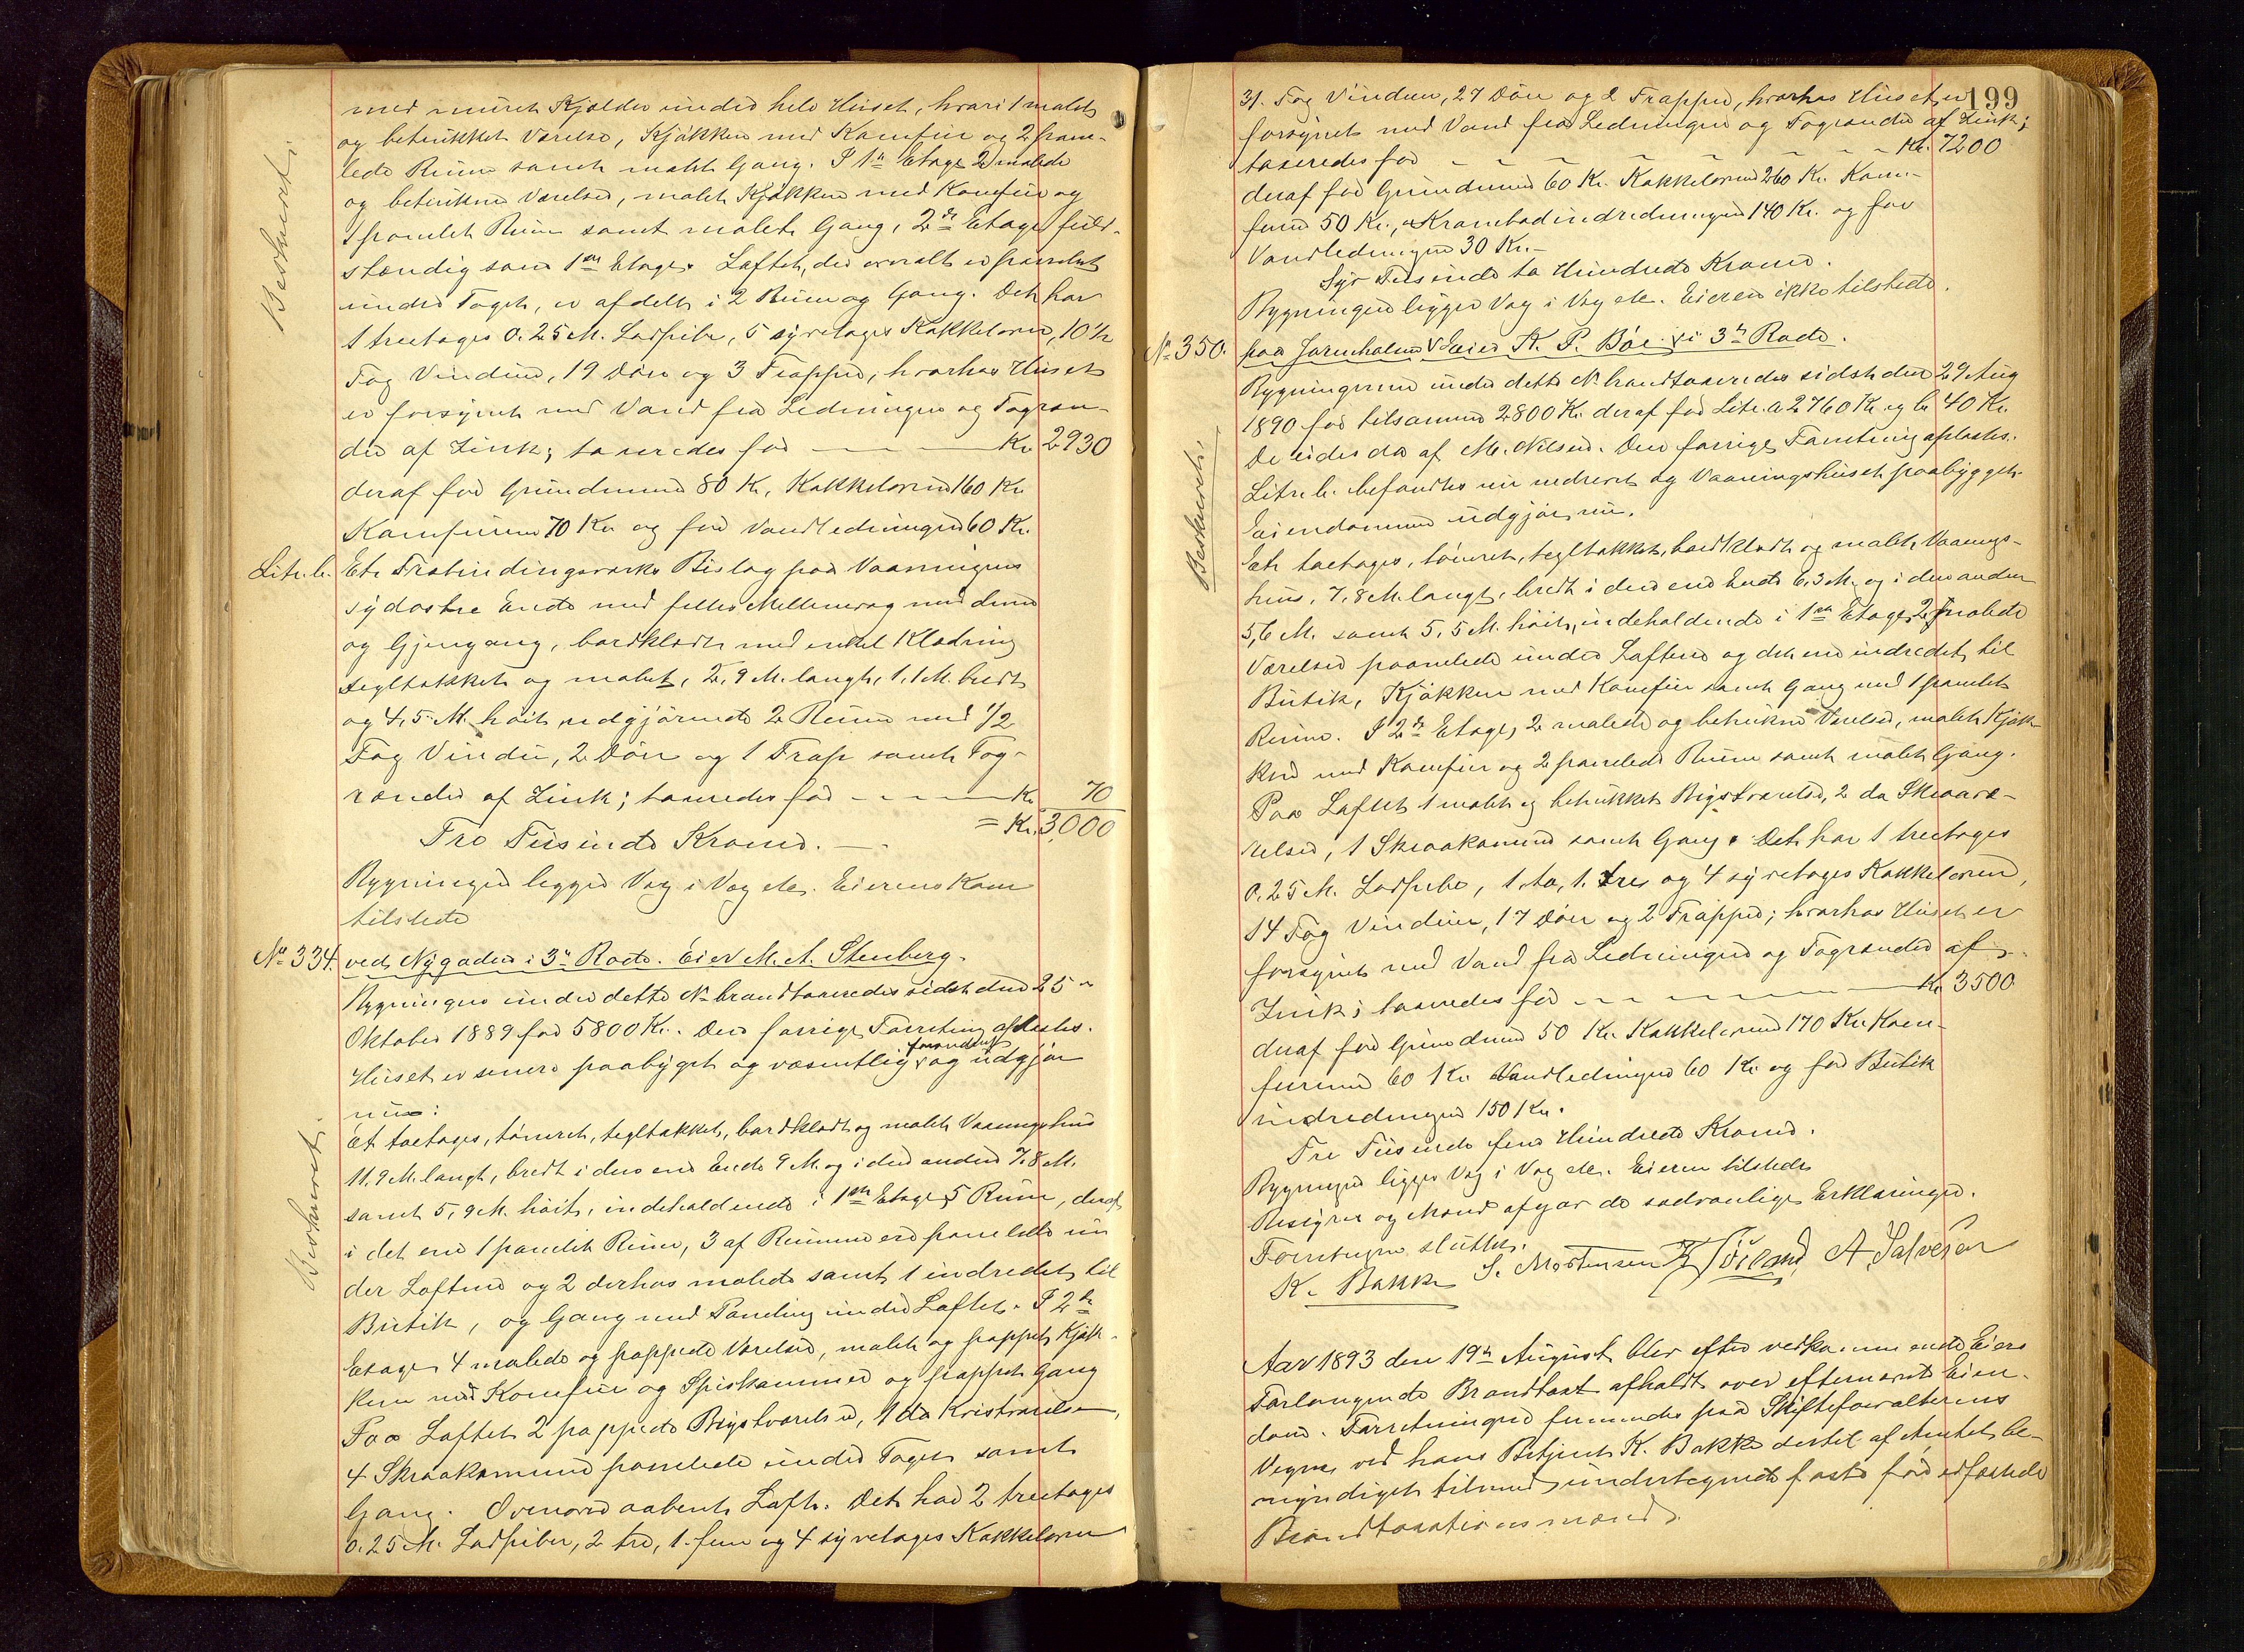 med muret Kjælder under hele Huset, hvori 1 malet
og betrukket Værelse, Kjøkken med Komfur og 2 pane-
lede Rum samt malet Gang. I 1ste Etage 2 malede
og betrukne Værelser, malet Kjøkken med Komfur og
1 panelet Rum samt malet Gang, 2den Etage fuld-
stændig som 1ste Etage. Loftet, der overalt er panelet
under Taget, er afdelt i 2 Rum og Gang. Det har
1 treetages 0.25 M. Ladpibe, 5 syvetages Kakkelovne, 10 1/2
Fag Vinduer, 19 Døre og 3 Trapper, hvorhos Huset
er forsynet med Vand fra Ledningen og Tagren-
der af Zink; taxeredes for — — — Kr. 2930
deraf for Grundmur 80 Kr, Kakkelovne 160 Kr
Komfurer 70 Kr og for Vandledningen 60 Kr.
Litr. b. Et Frabindingsværks Bislag paa Vaaningens
sydøstre Ende med fælles Mellemvæg med denne
og Gjengang, bordklædt med enkel Klædning
tegltækket og malet, 2,9 M. langt, 1.1 M. bredt
og 4,5 M. høit, udgjørende 2 Rum med 1/2
Fag Vindu, 2 Døre og 1 Trap samt Tag-
render af Zink; taxeredes for — — — Kr 70
= Kr. 3,000
Tre Tusinde Kroner. —
Bygningen ligger Væg i Væg etc. Eierens Kone
tilstede
No 334. ved Nygaden i 3die Rode. Eier M. A. Stenberg.
Bygningen under dette No brandtaxeredes sidst den 25de
Oktober 1889 for 5800 Kr. Den forrige Forretning aflæstes.
Huset er senere paabygget og væsentlig forandret og udgjør
nu:
Et toetages, tømret, tegltækket, bordklædt og malet Vaaningshus
11.9 M. langt, bredt i den ene Ende 9 M. og i den anden 7.8 M.
samt 5,9 M. høit, indeholdende i 1ste Etage 5 Rum, deraf
i det ene 1 panelet Rum, 3 af Rummene er panelede un
der Loftene og 2 derhos malede samt 1 indredet til
Butik, og Gang med Paneling under Loftet. I 2den
Etage 4 malede og pappede Værelser, malet og pappet Kjøk-
ken med Komfur og Spiskammer og pappet Gang
Paa Loftet 2 pappede Brystværelser, 1 do Kvistværelse,
4 Skraakamre panelede under Taget samt
Gang. Ovenover aabent Loft. Det har 2 treetages
0.25 M. Ladpiber, 2 tre, 1. fem og 4 syvetages Kakkelovne
Beskueret.
Beskueret.
199
31. Fag Vinduer, 27 Døre og 2 Trapper, hvorhos Huset er
forsynet med Vand fra Ledningen og Tagrender af Zink;
taxeredes for — — — Kr. 7200
deraf for Grundmur 60 Kr. Kakkelovne 260 Kr. Kom-
furer 50 Kr., Krambodindredningen 140 Kr. og for
Vandledningen 30 Kr. —
Syv Tusinde to Hundrede Kroner.
Bygningen ligger Væg i Væg etc. Eieren ikke tilstede.
No 350. paa Jernholmen Eier K. P. Bøe i 3die Rode.
Bygningerne under dette No brandtaxeredes sidst den 29 Aug
1890 for tilsammen 2800 Kr. deraf for Litr. a 2760 Kr og b 40 Kr.
De eides da af M. Nilsen. Den forrige Forretning aflæstes.
Litr. b. befandtes nu nedrevet og Vaaningshuset paabygget.
Eiendommen udgjør nu.
Et toetages, tømret, tegltækket, bordklædt og malet Vaanings-
hus, 7,8 M. langt, bredt i den ene Ende 6,3 M. og i den anden
5,6 M. samt 5,5 M. høit, indeholdende i 1ste Etage 2 malede
Værelser panelede under Loftene og det ene indredet til
Butik, Kjøkken med Komfur samt Gang med 1 panelet
Rum. I 2den Etage, 2 malede og betrukne Værelser, malet Kjøk
ken med Komfur og 2 panelede Rum samt malet Gang.
Paa Loftet 1 malet og betrukket Brystværelse, 2 do Skraavæ-
relser, 1 Skraakammer samt Gang. Det har 1 treetages
0.25 M. Ladpibe, 1 to, 1. tre og 4 syvetages Kakkelovne,
14 Fag Vinduer, 17 Døre og 2 Trapper; hvorhos Huset er
forsynet med Vand fra Ledningen og Tagrender af
Zink; taxeredes for — — — Kr 3500
deraf for Grundmur 50 Kr. Kakkelovne 170 Kr. Kom-
furerne 60 Kr. Vandledningen 60 Kr. og for Butik
indredningen 150 Kr.
Tre Tusinde fem Hundrede Kroner.
Bygningen ligger Væg i Væg etc. Eieren tilstede
Besigtes og Mænd afgav de sædvanlige Erklæringer.
Forretningen sluttet.
K. Bakke S. Mortensen A Salvesen
Aar 1893 den 19de August blev efter vedkommende Eiers
Forlangende Brandtaxt afholdt over efternævnte Eien-
dom. Forretningen fremmedes paa Skifteforvalterens
Vegne ved hans Betjent K. Bakke dertil af Amtet be-
myndiget tilmed undertegnede faste for edfæstede
Brandtaxationsmænd.
Beskueret.